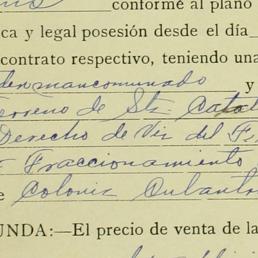 conforme al plano
ca y legal posesión desde el día
contrato respectivo, teniendo una
den mancomunado y
erreno de Sta Cata
Derecho de Vía del F
Fraccionamiento
e Colonia Cubanton
UNDA:—El precio de venta de la